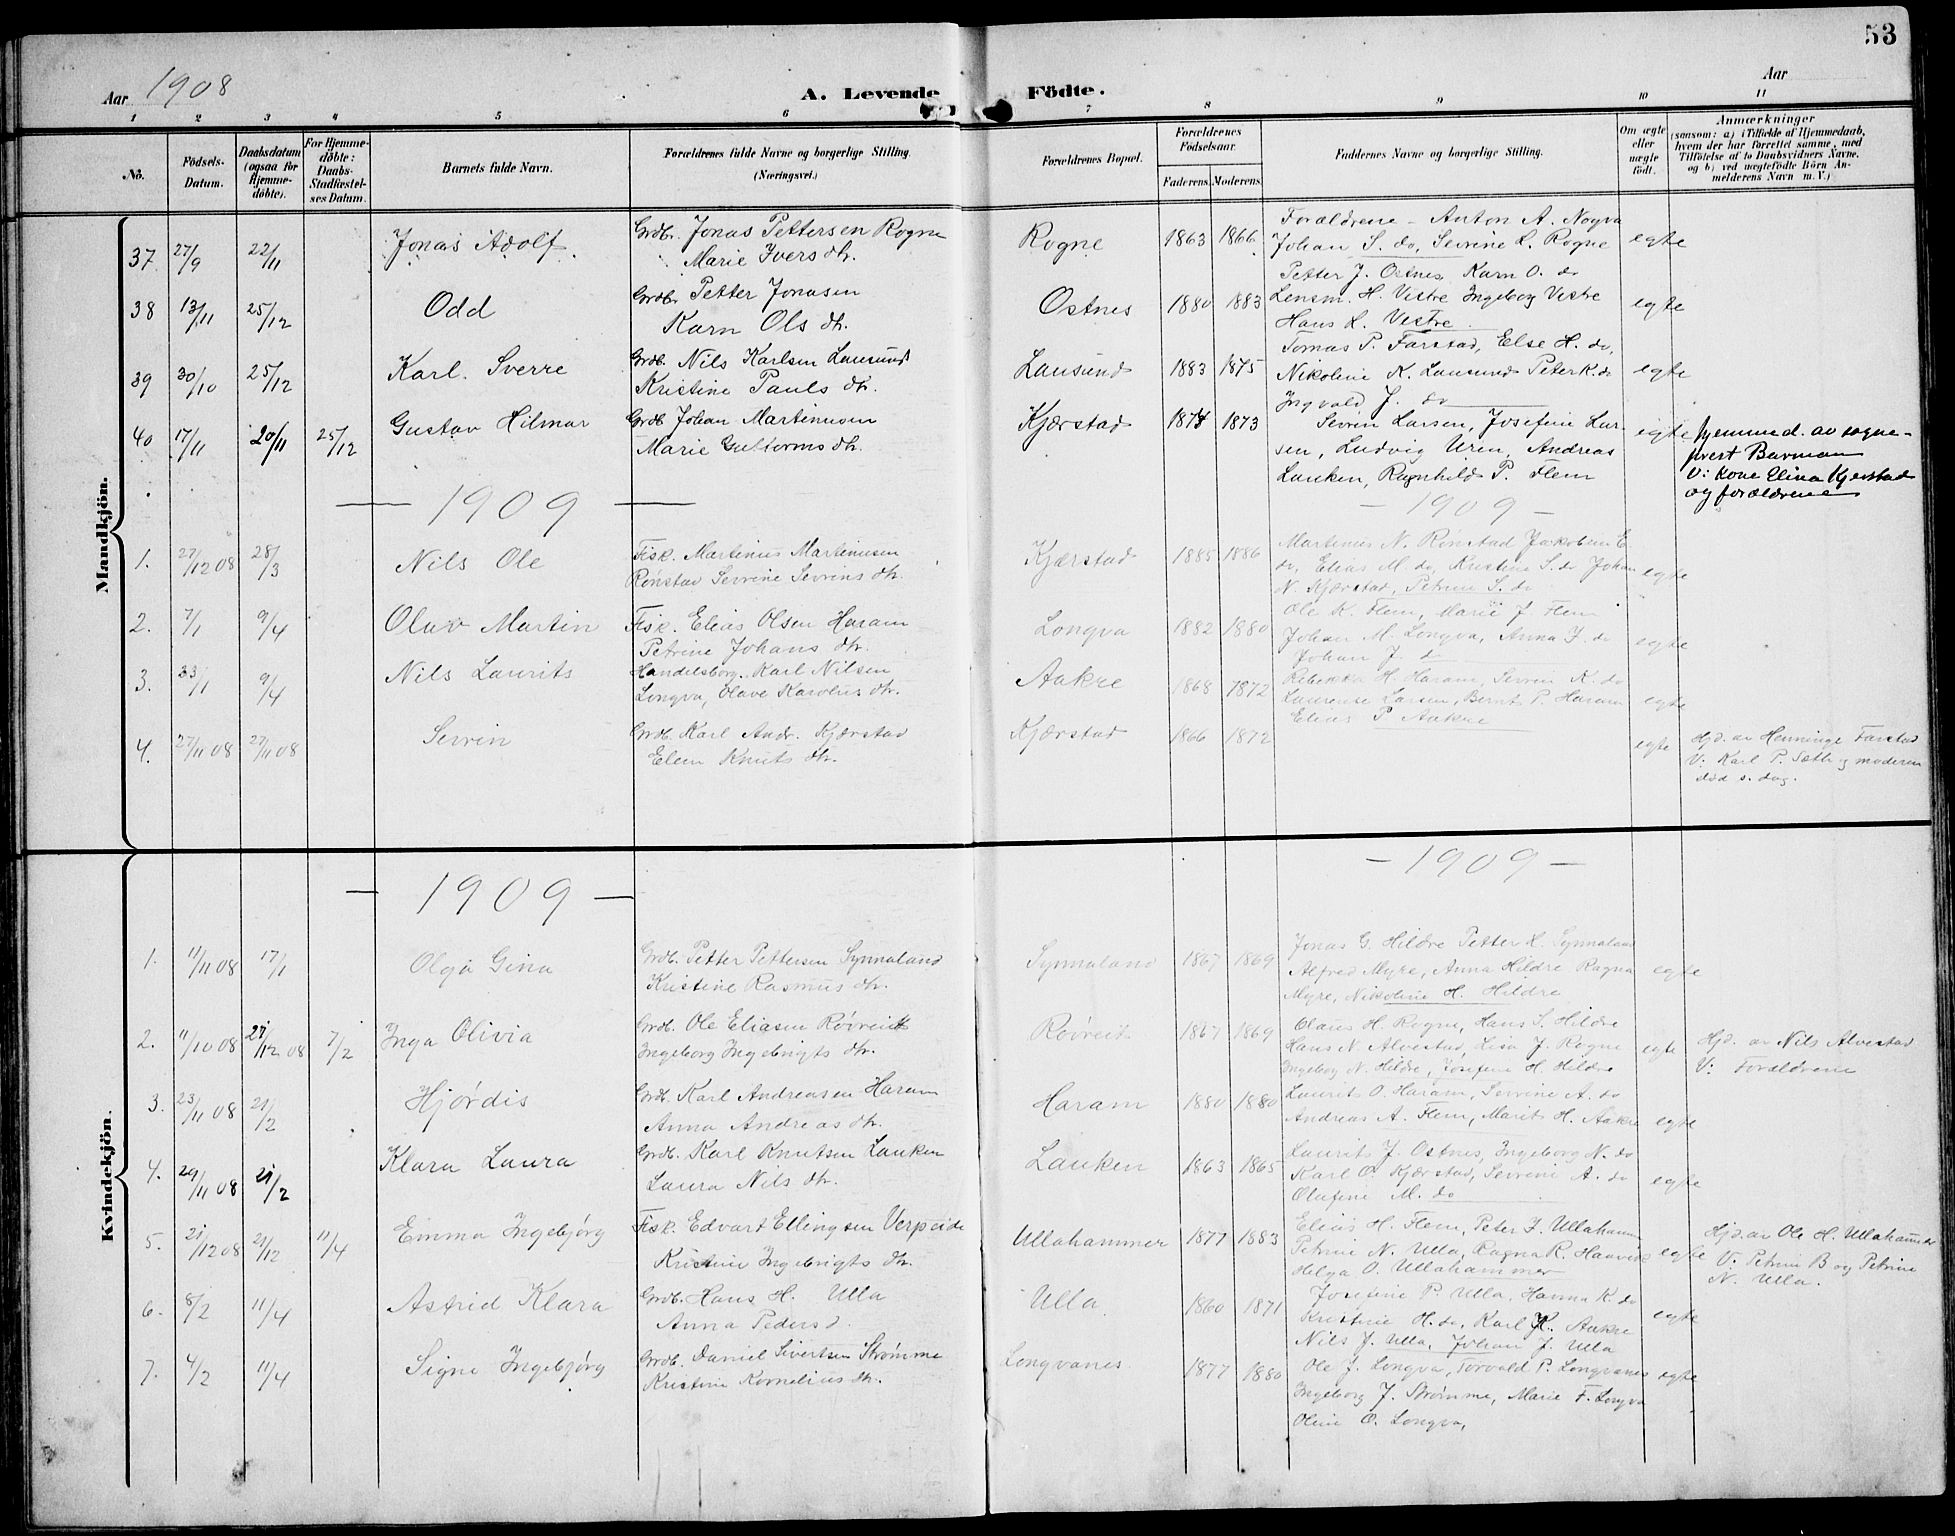 53
Aar 1908
A. Levende Födte.
Aar
1 2 3 4 5 6 7 8 9 10 11
No.
Födsels-Datum.
Daabsdatum (ogsaa för Hjemme-döbte).
For Hjemme-döbte: Daabs-Stadfæstel-ses Datum.
Barnets fulde Navn.
Forældrenes fulde Navne og borgerlige Stilling. (Næringsvei.)
Forældrenes Bopæl.
Forældrenes Födselsaar.
Faderens. Moderens.
Faddernes Navne og borgerlige Stilling.
Om ægte eller uægte födt.
Anmærkninger
(saasom: a) i Tilfælde af Hjemmedaab,
hvem der har forrettet samme, med
Tilföielse af to Daabsvidners Navne,
og b) ved uægtefödte Börn An-
melderens Navn m. V.)
Mandkjön.
37 27/9 22/11 Jonas Adolf Grdb. Jonas Pettersen Rogne
Marie Ivers dtr. Rogne 1863 1866 Forældrene - Anton A. Nogva
Johan S. do, Sevrine L. Rogne egte
38 13/11 25/12 Odd Grdb. Petter Jonasen
Karn Ols dtr. Ostnes 1880 1883 Petter J. Ostnes Karn O. do
Lensm. H. Vestre Ingeborg Vestre
Hans L. Vestre egte
39 30/10 25/12 Karl Sverre Grdb. Nils Karlsen Lausund
Kristine Pauls dtr. Lausund 1883 1875 Tomas P. Farstad, Else H. do,
Nikoline K. Lausund Peter K. do
Ingvald J. do egte
40 17/11 20/11 25/12 Gustav Hilmar Grdb Johan Martinusen
Marie Guttorms dtr. Kjærstad 1873 Sevrin Larsen, Josefine Lar-
sen, Ludvig Uren, Andreas
Lauken, Ragnhild P. Flem egte hjemmed. av sogne-
prest Barman
V: Kone Elina Kjerstad
og forældrene
— 1909 — — 1909 —
1. 27/12 08 28/3 Nils Ole Fisk. Martinus Martinusen
Rønstad Sevrine Sevrins dtr. Kjærstad 1885 1886 Martinus N. Rønstad Jakobine E
do, Elias M. do, Kristine S. do Johan
N. Kjærstad, Petrine S. do egte
2. 7/1 9/4 Olav Martin Fisk. Elias Olsen Haram
Petrine Johans dtr. Longva 1882 1880 Ole K. Flem, Marie J. Flem
Johan M. Longva, Anna J. do
Johan J. do egte
3. 9/4 Nils Laurits Handelsborg. Karl Nilsen
Longva, Olave Karolius dtr. Aakre 1868 1872 Rebekka H. Haram, Sevrin K. do
Laurense Larsen, Bernt P. Haram
Elias P Aakre egte
4. 27/11 08 27/11 08 Sevrin Grdb. Karl Andr. Kjærstad
Elen Knuts dtr. Kjærstad 1866 1872 egte Hjd. av Henninge Farstad
V: Karl P. Sætr og moderen
død s. dag.
Kvindekjön.
— 1909 — — 1909 —
1. 11/11 08 17/1 Olga Gina Grdb. Petter Pettersen Synnaland
Kristine Rasmus dtr. Synnaland 1867 1869 Jonas G. Hildre Petter L. Synnaland
Alfred Myre, Anna Hildre Ragna
Myre, Nikoline H. Hildre egte
2. 11/10 08 27/12 08 7/2 Inga Olivia Grdb. Ole Eliasen Røvreit
Ingeborg Ingebrigts dtr. Røvreit 1867 1869 Claus H. Rogne, Hans S. Hildre
Hans N. Alvestad, Lisa J. Rogne
Ingeborg N. Hildre, Josefine H. Hildre egte Hjd. av Nils Alvestad
V: Forældrene
3. 23/11 08 21/2 Hjørdis Grdb. Karl Andreasen Haram
Anna Andreas dtr. Haram 1880 1880 Laurits O. Haram, Sevrine A. do
Andreas A. Flem, Marit H. Aakre egte
4. 29/11 08 21/2 Klara Laura Grdb. Karl Knutsen Lauken
Laura Nils dtr. Lauken 1863 1865 Laurits J. Ostnes, Ingeborg N. do
Karl O. Kjærstad, Sevrine A. do
Olufine M. do egte
5. 21/12 08 21/12 11/4 Emma Ingebjørg Fisk. Edvart Ellingsen Verpeide
Kristine Ingebrigts dtr. Ullahammer 1877 1883 Elias H. Flem, Peter J. Ullahamm
Petrine N. Ulla, Ragna R. Haavik
Helga O. Ullahammer egte Hjd. av Ole H. Ullahammer
V: Petrine B og Petrine
N. Ulla.
6. 8/2 11/4 Astrid Klara Grdb. Hans H. Ulla
Anna Peders d Ulla 1860 1871 Josefine P. Ulla, Hanna K. do
Kristine H. do, Karl K. Aakre
Nils J. Ulla, Johan J. Ulla egte
7. 4/2 11/4 Signe Ingebjørg Grdb. Daniel Sivertsen Strømme
Kristine Kornelius dtr. Longvanes. 1877 1880 Ole J. Longva, Torvald P. Longvanes
Ingeborg J. Strømme, Marie F. Longva
Oline O. Longva, egte